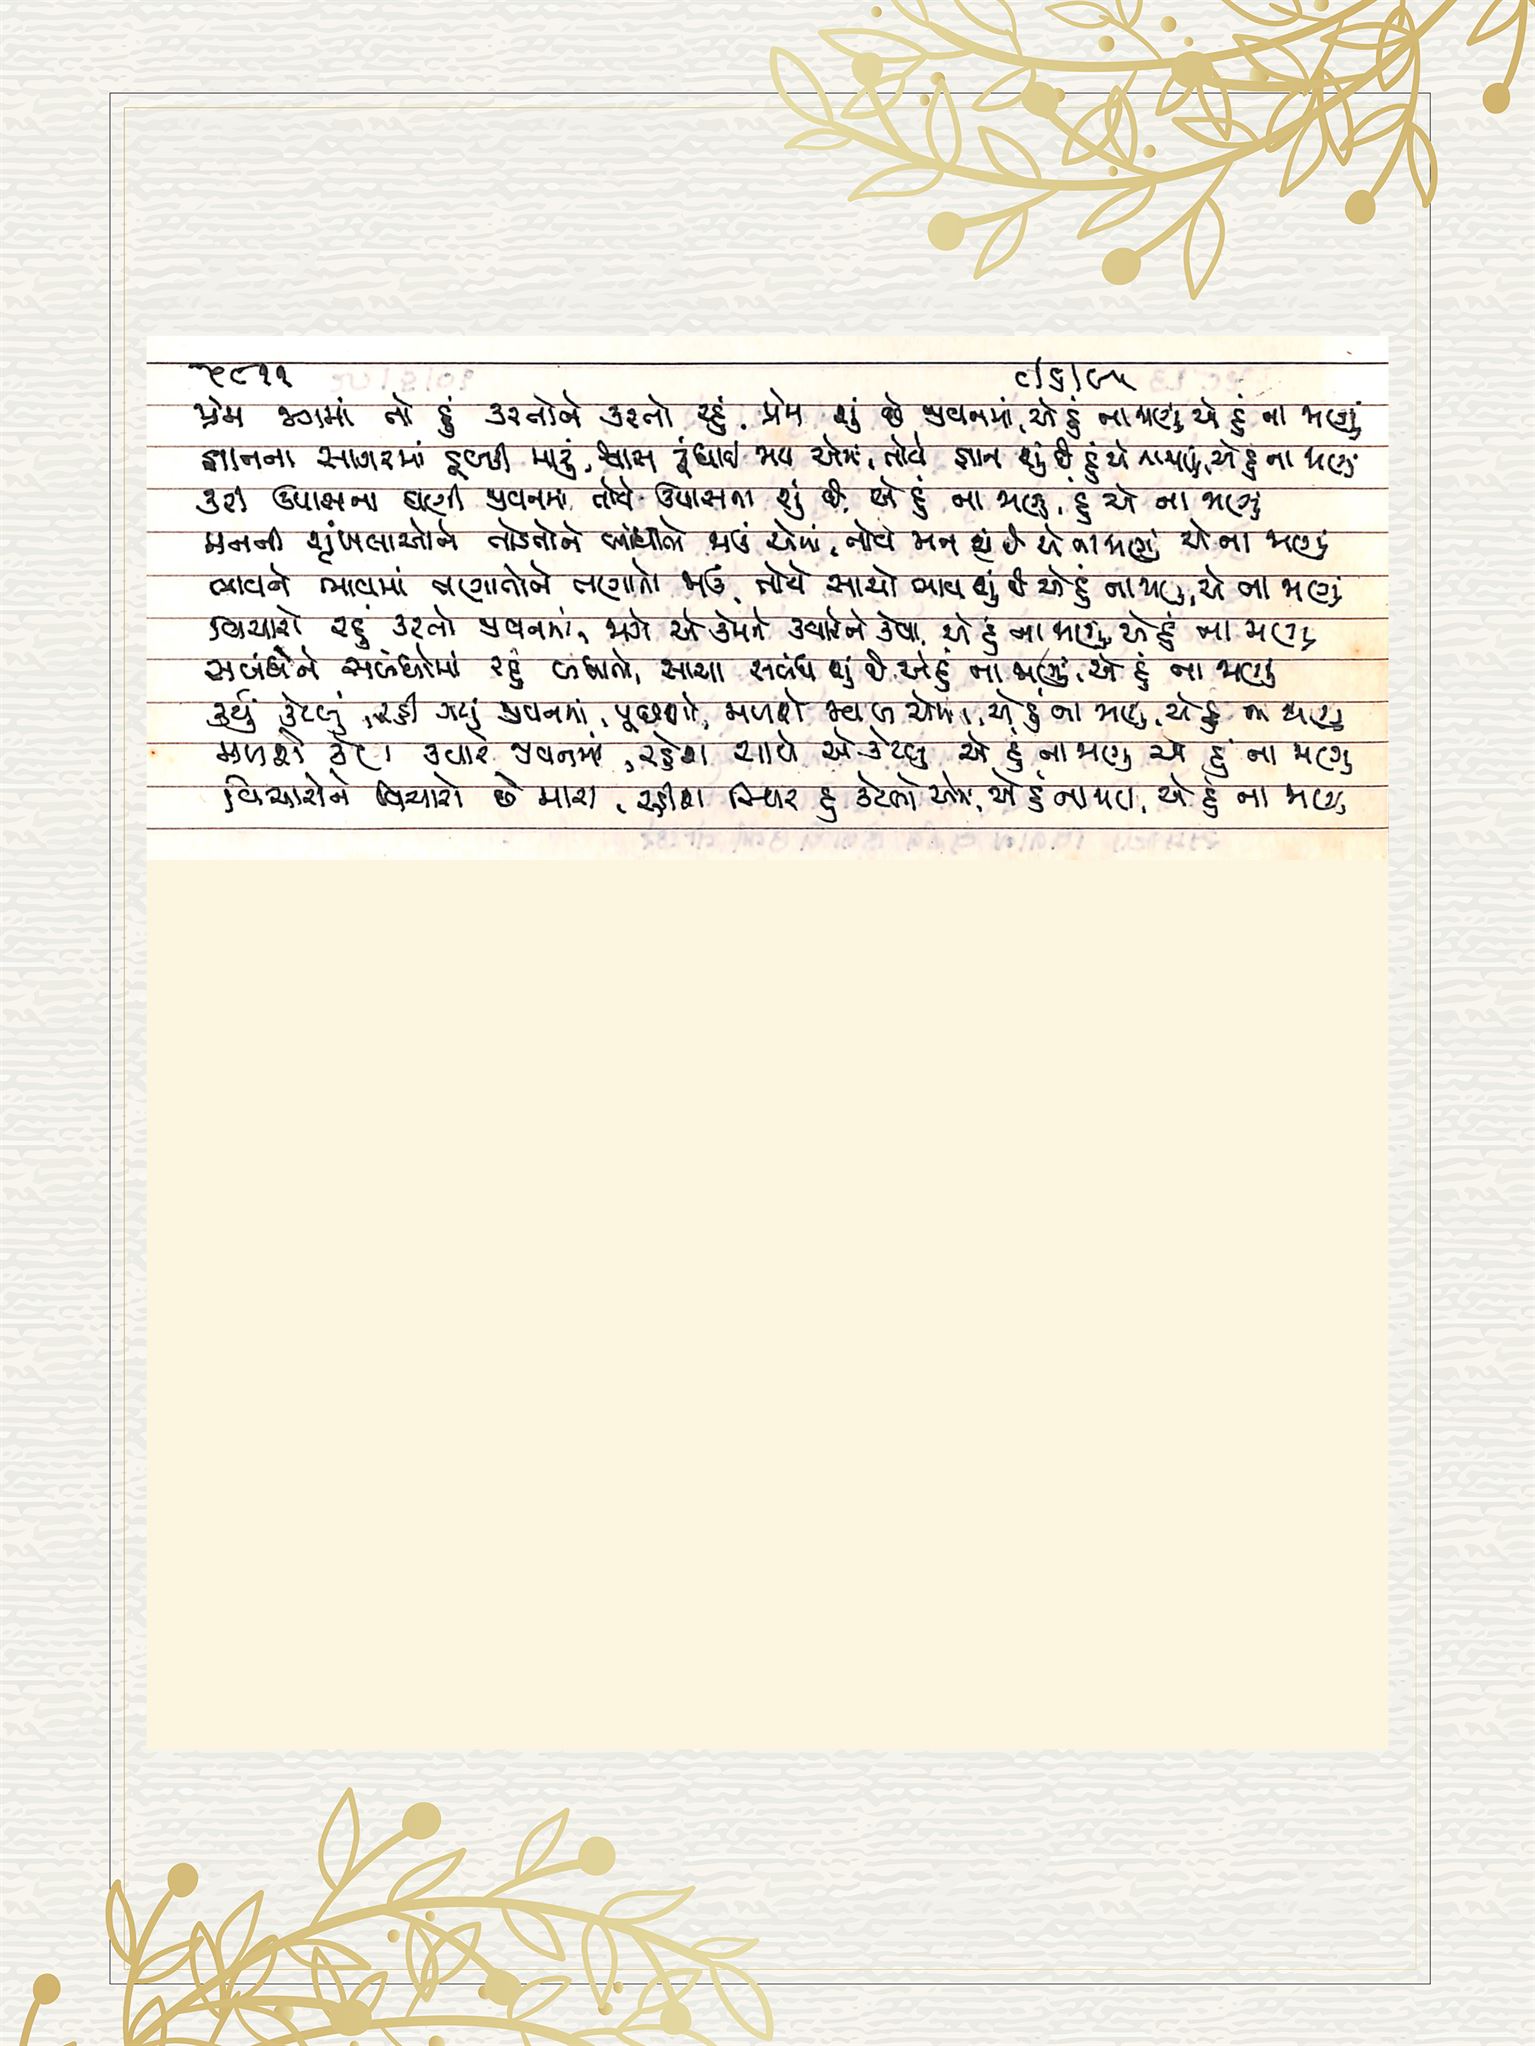 ૫૮૧૧ ૮/૬/૯૫
પ્રેમ જગમાં તો હું કરતોને કરતો રહું, પ્રેમ શું છે જીવનમાં, એ હું ના જાણું, એ હું ના જાણું
જ્ઞાનના સાગરમાં ડૂબકી મારું, શ્વાસ રૂંધાઈ જાય એમાં, તોયે જ્ઞાન શું છે હું એ ના જાણું, એ હું ના જાણું
કરી ઉપાસના ઘણી જીવનમાં તોયે ઉપાસના શું છે, એ હું ના જાણું, હું એ ના જાણું
મનની શૃંખલાઓને તોડતોને બાંધીને જાઉં એમાં, તોયે મન શું છે એ ના જાણું એ ના જાણું
ભાવને ભાવમાં તણાતોને તણાતો જાઉં, તોયે સાચો ભાવ શું છે એ હું ના જાણું, એ ના જાણું
વિચારો રહું કરતો જીવનમાં, જાગે એ કેમને ક્યારેને કેવા, એ હું ના જાણું, એ હું ના જાણું
સબંધોને સબંધોમાં રહું બંધાતો, સાચા સબંધ શું છે એ હું ના જાણું, એ હું ના જાણું
કર્યું કેટલું, રહી ગયું જીવનમાં, પૂછશો, મળશે જવાબ એમાં, એ હું ના જાણું, એ હું ના જાણું
મળશે ક્યારે જીવનમાં, રહેશે સાથે એ કેટલું એ હું ના જાણું એ હું ના જાણું
વિચારોને વિચારો છે મારા, રહીશ સ્થિર હું કેટલો એમાં, એ હું ના જાણું, એ હું ના જાણું